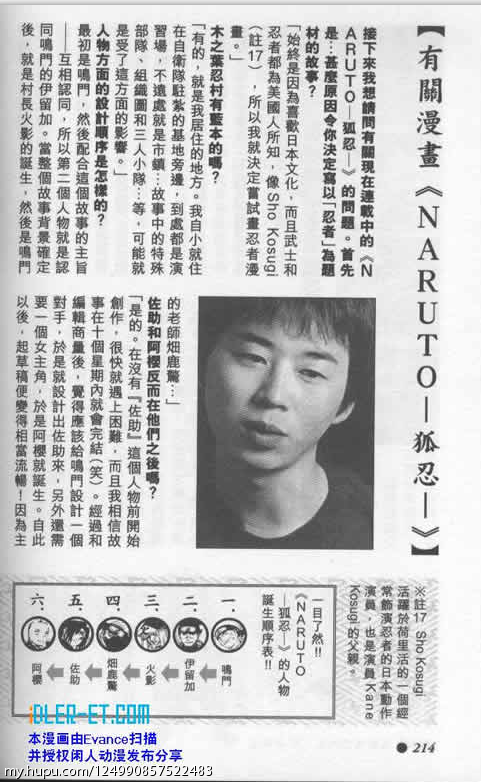 【有關漫畫《NARUTO—狐忍—》】
接下來我想請問有關現在連載中的《N
ARUTO—狐忍—》的問題。首先
是…甚麼原因令你決定寫以「忍者」為題
材的故事？
「始終是因為喜歡日本文化，而且武士和
忍者都為美國人所知，像Sho Kosugi
（註17），所以我就決定嘗試畫忍者漫
畫。」
木之葉忍村有藍本的嗎？
「有的，就是我居住的地方。我自小就住
在自衛隊駐紮的基地旁邊，到處都是演
習場，不遠處就是市鎮…故事中的特殊
部隊、組織圖和三人小隊…等，可能就
是受了這方面的影響。」
人物方面的設計順序是怎樣的？
最初是鳴門，然後配合這個故事的主旨
——互相認同，所以第二個人物就是認
同鳴門的伊留加。當整個故事背景確定
後，就是村長火影的誕生，然後是鳴門
的老師畑鹿驚…」
佐助和阿櫻反而在他們之後嗎？
「是的。在沒有『佐助』這個人物前開始
創作，很快就遇上困難，而且我相信故
事在十個星期內就會完結（笑）。經過和
編輯商量後，覺得應該給鳴門設計一個
對手，於是就設計出佐助來，另外還需
要一個女主角，於是阿櫻就誕生。自此
以後，起草稿便變得相當流暢！因為主
※註17 Sho Kosugi
活躍於荷里活的一個經
常飾演忍者的日本動作
演員，也是演員Kane
Kosugi的父親。
一目了然!!
《NARUTO
—狐忍—》的人物
誕生順序表!!
一．鳴門
二．伊留加
三．火影
四．畑鹿驚
五．佐助
六．阿櫻
●214
iDLER-ET.COM
本漫画由Evance扫描
并授权闲人动漫发布分享
my.hupu.com/124990857522483